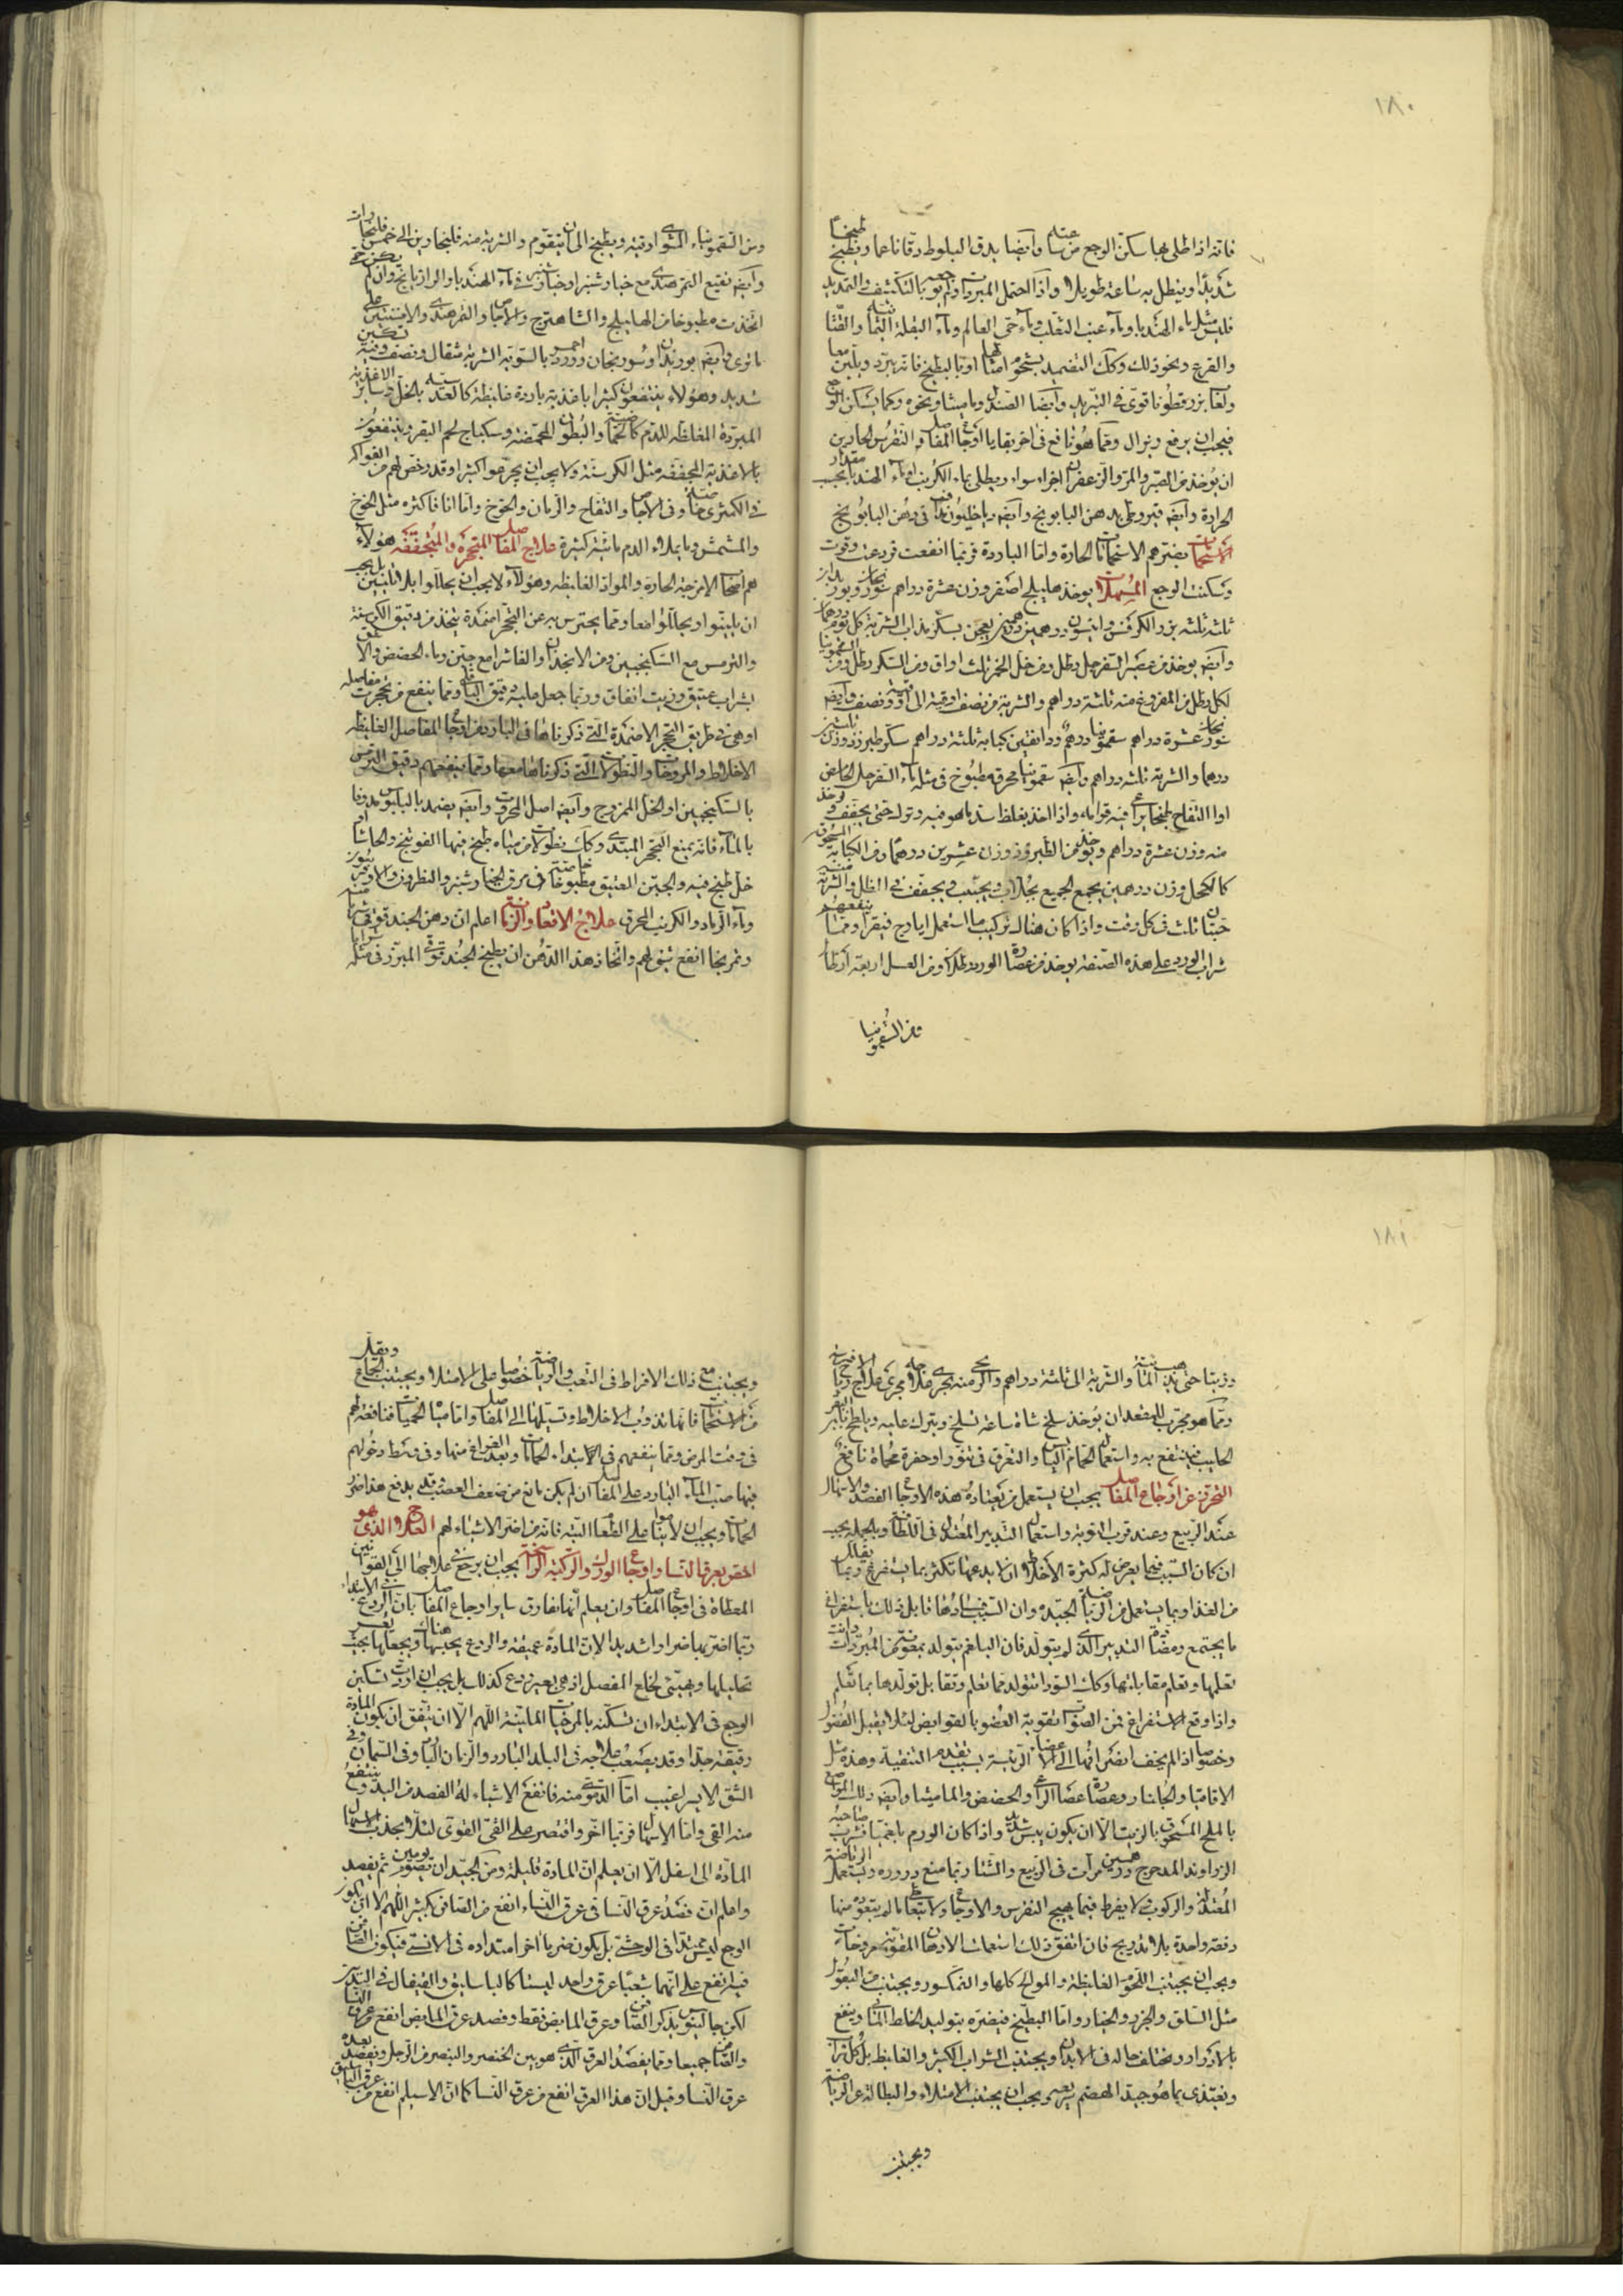 ١٨٠
فانه اذا طلى بها سكن الوجع من ساعته وايضا يدق البلوط دقا ناعما ويطبخ طبخا
شديدا وينطل به ساعة طويلة واذا احتمل المبردات ولم يوجعه بالتكثيف والتمديد
فليس مثل ماء الهندبا وماء عنب الثعلب وماء حى العالم وماء البقلة الحمقا والقثا
والقرع ونحو ذلك وكذلك التضميد بشحوم امثالها او بالبطيخ فانه يبرد ويلين معا
ولعاب بزر قطونا قوى فى التبريد وايضا الصندل وماميثا ونحوه وكما يسكن الوجع
فيجب ان يرفع ويزال ومما هو نافع فى اخر بقايا اوجاع المفاصل والنقرس الحادين
ان يؤخذ من الصبر والمر والزعفران اجزاء سواء ويطلى بماء الكرنب او ماء الهندبا بحسب مقدار
الحرارة وايضا قيروطى بدهن البابونج وايضا دياخيلون مدافا فى دهن البابونج
الاستحمامات يضرهم الاستحمامات الحارة واما الباردة فربما انفعت فردعت وقوت
وسكنت الوجع المسهلات يوخذ هليلج اصفر وزن عشرة دراهم سورنجان وبوزيدان
ثلثة ثلثة بزر الكرفس وانيسون درهمين درهمين يعجن بسكر مذاب الشربة كل يوم درهمان
وايضا يوخذ من عصير السفرجل رطل ومن خل الخمر ثلث اواق ومن السكر رطل ومن السقمونيا
لكل رطل من المفروغ منه ثلثة دراهم والشربة من نصف اوقية الى اوقية ونصف وايضا
سورنجان عشرة دراهم سقمونيا درهم ودانقين كبابة ثلثة دراهم سكر طبرزد وزن ثلثين
درهما والشربة ثلثة دراهم وايضا سقمونيا محرقة مطبوخ فى مثله ماء السفرجل الحامض
او التفاح طبخا يراعى فيه قوامه واذا اخذ يغلظ سد ما هو فيه وترك حتى يجفف ويوخذ
منه وزن عشرة دراهم ويوخذ من الطبرزد وزن عشرين درهما ومن الكبابة المسحوق
كالكحل وزن درهمين يجمع الجميع بجلاب ويحبب ويجفف فى الظل والشربة منه
حبتان ثلث فى كل وقت واذا كان هناك تركيب ما استعمل ايارج فيقرا ومما ينفعهم
شراب الورد على هذه الصفة يوخذ من عصارة الورد رطلا ومن العسل اربعة ارطال
ومن السقمونيا
ومن السقمونيا المشوى اوقية ويطبخ الى ان يتقوم والشربة منه فلنجارين الى خمس فلنجارات
وايضا نقيع التمرهندى مع خيارشنبر او خيارشنبر فى ماء الهندبا والرازيانج وان لم يكن حمى
اتخذت مطبوخا من الهليلج والشاهترج والاجاص والتمرهندى والافسنتين على
ما ترى وايضا بوزيدان وسورنجان وورد احمر بالسوية الشربة مثقال ونصف وفيه تسكين
شديد وهؤلاء ينتفعون كثيرا باغذية باردة غليظة كالعدسية بالخل وسائر الاغذية
المبردة المغلظة للدم كالحماضية والبطون المحمضة وسكباج لحم البقر وينتفعون
بالاغذية المجففة مثل الكرسنة ولا يجب ان يجرعوا كثيرا وقد رخص لهم من الفواكه
فى الكمثرى خاصة وفى الاجاص والتفاح والرمان والخوخ واما انا فاكثره مثل الخوخ
والمشمش وما يملاء الدم مائية كثيرة علاج المفاصل المتحجرة والمتجففة هؤلاء
هم اصحاب الامزجة الحارة والمواد الغليظة وهؤلاء لا يجب ان يحللوا بلا تليين بل يجب
ان يلينوا ويحللوا معا ومما يحترس به عن التحجر اضمدة يتخذ من دقيق الكرسنة
والترمس مع السكنجبين ومن الانجدان والفاشرا مع جبن وماء الحضض والا
بشراب عتيق وزيت انفاق وربما جعل عليه دقيق الباقلى ومما ينفع من تحجرت مفاصله
او هى فى طريق التحجر الاضمدة التى ذكرناها فى الباردة من اوجاع المفاصل الغليظة
الاخلاط والمروخات والنطولات التى ذكرناها معها ومما ينفعهم دقيق الترمس
بالسكنجبين او الخل الممزوج وايضا اصل المحروث وايضا يضمد بالبلبوس مدقوقا
بالماء فانه يمنع التحجر المبتدى وكذلك نطولات من مياه طبخ فيها الفوتنج والحاشا او
خل طبخ فيه والجبن العتيق مطبوخا فى مرق الخيارشنبر والنطرون والاوفربيون خاصة
وماء الرماد والكرنب المحرق علاج الاقعاد والزمانة اعلم ان دهن الجندقوقى شربا
وتمريخا انفع شى لهم واتخاذ هذا الدهن ان يطبخ الجندقوقى المبزر فى مثله
١٨١
وزيتا حتى يذهب الماء والشربة الى ثلثة دراهم واكثر منه يجرى مجراه علاج رياح الافرسة
ومما هو مجرب للمقعد ان يؤخذ سلخ شاة ساعة تسلخ ويترك عليه ويلطخ بلبن البقر
الحليب فينتفع به واستعمال الحمام اليابس والتعرق فى تنور او حفرة محماة نافع
التحرز عن اوجاع المفاصل يجب ان يستعمل من يعتاده هذه الاوجاع الفصد والاسهال
عند الربيع وعند قرب النوبة واستعمال التدبير المعتدل فى اللطافة وبالجملة يجب
ان كان السبب فيما يعرض له كثرة الاخلاط ان لا يدعها تكثر بما يستفرغ وبما يقلل
من الغذا وبما يستعمل من الرياضة الجيدة وان السبب فسادها قابل ذلك باستفراغ
ما يجتمع ومضادة التدبير الذى لم يتولد فان البلغم يتولد بمعونة من المبردات وانت
تعلمها وتعلم مقابلتها وكذلك السوداء تتولد مما تعلم وتقابل تولدها بما تعلم
واذا وقع الاستفراغ فمن الصواب تقوية العضو بالقوابض لئلا يقبل الفضول
وخصوصا اذا لم يخف انصرافها الى الاعضاء الرئيسة بسبب تقدم التنقية وهذه مثل
الاقاقيا والجلنار وعصارة عصا الراعى والحضض والماميثا وايضا دلك الموضع
بالملح المسحوق بالزيت الا ان يكون يبس شديد واذا كان الورم بلغميا فشرب صاحبه
الزراوند المدحرج درهمين مرات فى الربيع والشتا ربما منع دروره ويستعمل الرياضة
المعتدلة والركوب ولا يفرط فيما يهيج النقرس والاوجاع ولا يتعاطا ما لم يتعود منها
دفعة واحدة بلا تدريج فان اتفق ذلك استعملت الادهان المقوية مروخات
ويجب ان يجتنب اللحوم الغليظة والموالح كلها والنمكسود ويجتنب من البقول
مثل السلق والجزر والخيار واما البطيخ فيضره بتوليد الخلط المائى وينفع
بالادرار ويختلف حاله فى الابدان ويجتنب الشراب الكثير والغليظ بل كل شراب
ويغتذى بما هو جيد الهضم سريعه ويجب ان يجتنب الامتلاء والبطالة عن الرياضة
ويجتنب
ويجتنب مع ذلك الافراط فى التعب والرياضة خصوصا على الامتلاء ويجتنب الجماع ويقل
من الاستحمام فانها تذوب الاخلاط وتسيلها الى المفاصل واما مياه الحميات فنافعة لهم
فى وقت المرض ومما ينفعهم فى الابتداء الحمامات وبعد الفراغ منها وفى وسط دخولهم
فيها صب الماء البارد على المفاصل ان لم يكن مانع من ضعف العصب فقد يدفع هذا ضرر
الحمامات ويجب ان لا يناموا على الطعام البتة فانه من اضر الاشياء لهم العلاج الذى هو
اخص بعرق النسا واوجاع الورك والركبة الراسخة يجب ان يرجع فى علاجها الى القوانين
المعطاة فى اوجاع المفاصل وان يعلم انها تفارق سائر اوجاع المفاصل بان الردع فى الابتداء
ربما اضر بها ضررا شديدا لان المادة عميقة والردع يحبسها هناك ويجعلها بحيث يعسر
تحليلها ويهيئ لخلع المفصل اذ هى بغير ردع كذلك بل يجب ان اردت تسكين
الوجع فى الابتداء ان تسكنه بالمرخيات الملينة اللهم الا ان يتفق ان يكون المادة
رقيقة جدا وقد يصعب علاجه فى البلد البارد والزمان البارد وفى السمان وفى
الشق الايسر لغيب اما الدموى منه فانفع الاشياء له الفصد من اليد وينتفع
منه القى واما الاسهال فربما اخر واقتصر على القى القوى لئلا يجذب الاسهال
المادة الى اسفل الا ان يعلم ان المادة قليلة ومن الجيد ان يصوم يومين ثم يفصد
واعلم ان فصد عرق النسا فى عرق النساء انفع من الصافن بكثير اللهم الا ان يكون
الوجع ليس ممتدا فى الوحشى بل يكون ضربا اخر امتداده فى الانسى فيكون الصافن
فيه انفع على انهما شعبتا عرق واحد ليستا كالباسليق والقيفال فى البدين
لكن جالينوس يذكر الصافن وعرق المابض فقط وفصد عرق المابض انفع من عرق النسا
والصافن جميعا ومما يفصد العرق الذى هو بين الخنصر والبنصر من الرجل ويفصد بعده
عرق النسا وقيل ان هذا العرق انفع من عرق النسا كما ان الاسيلم انفع من عرق الباسليق